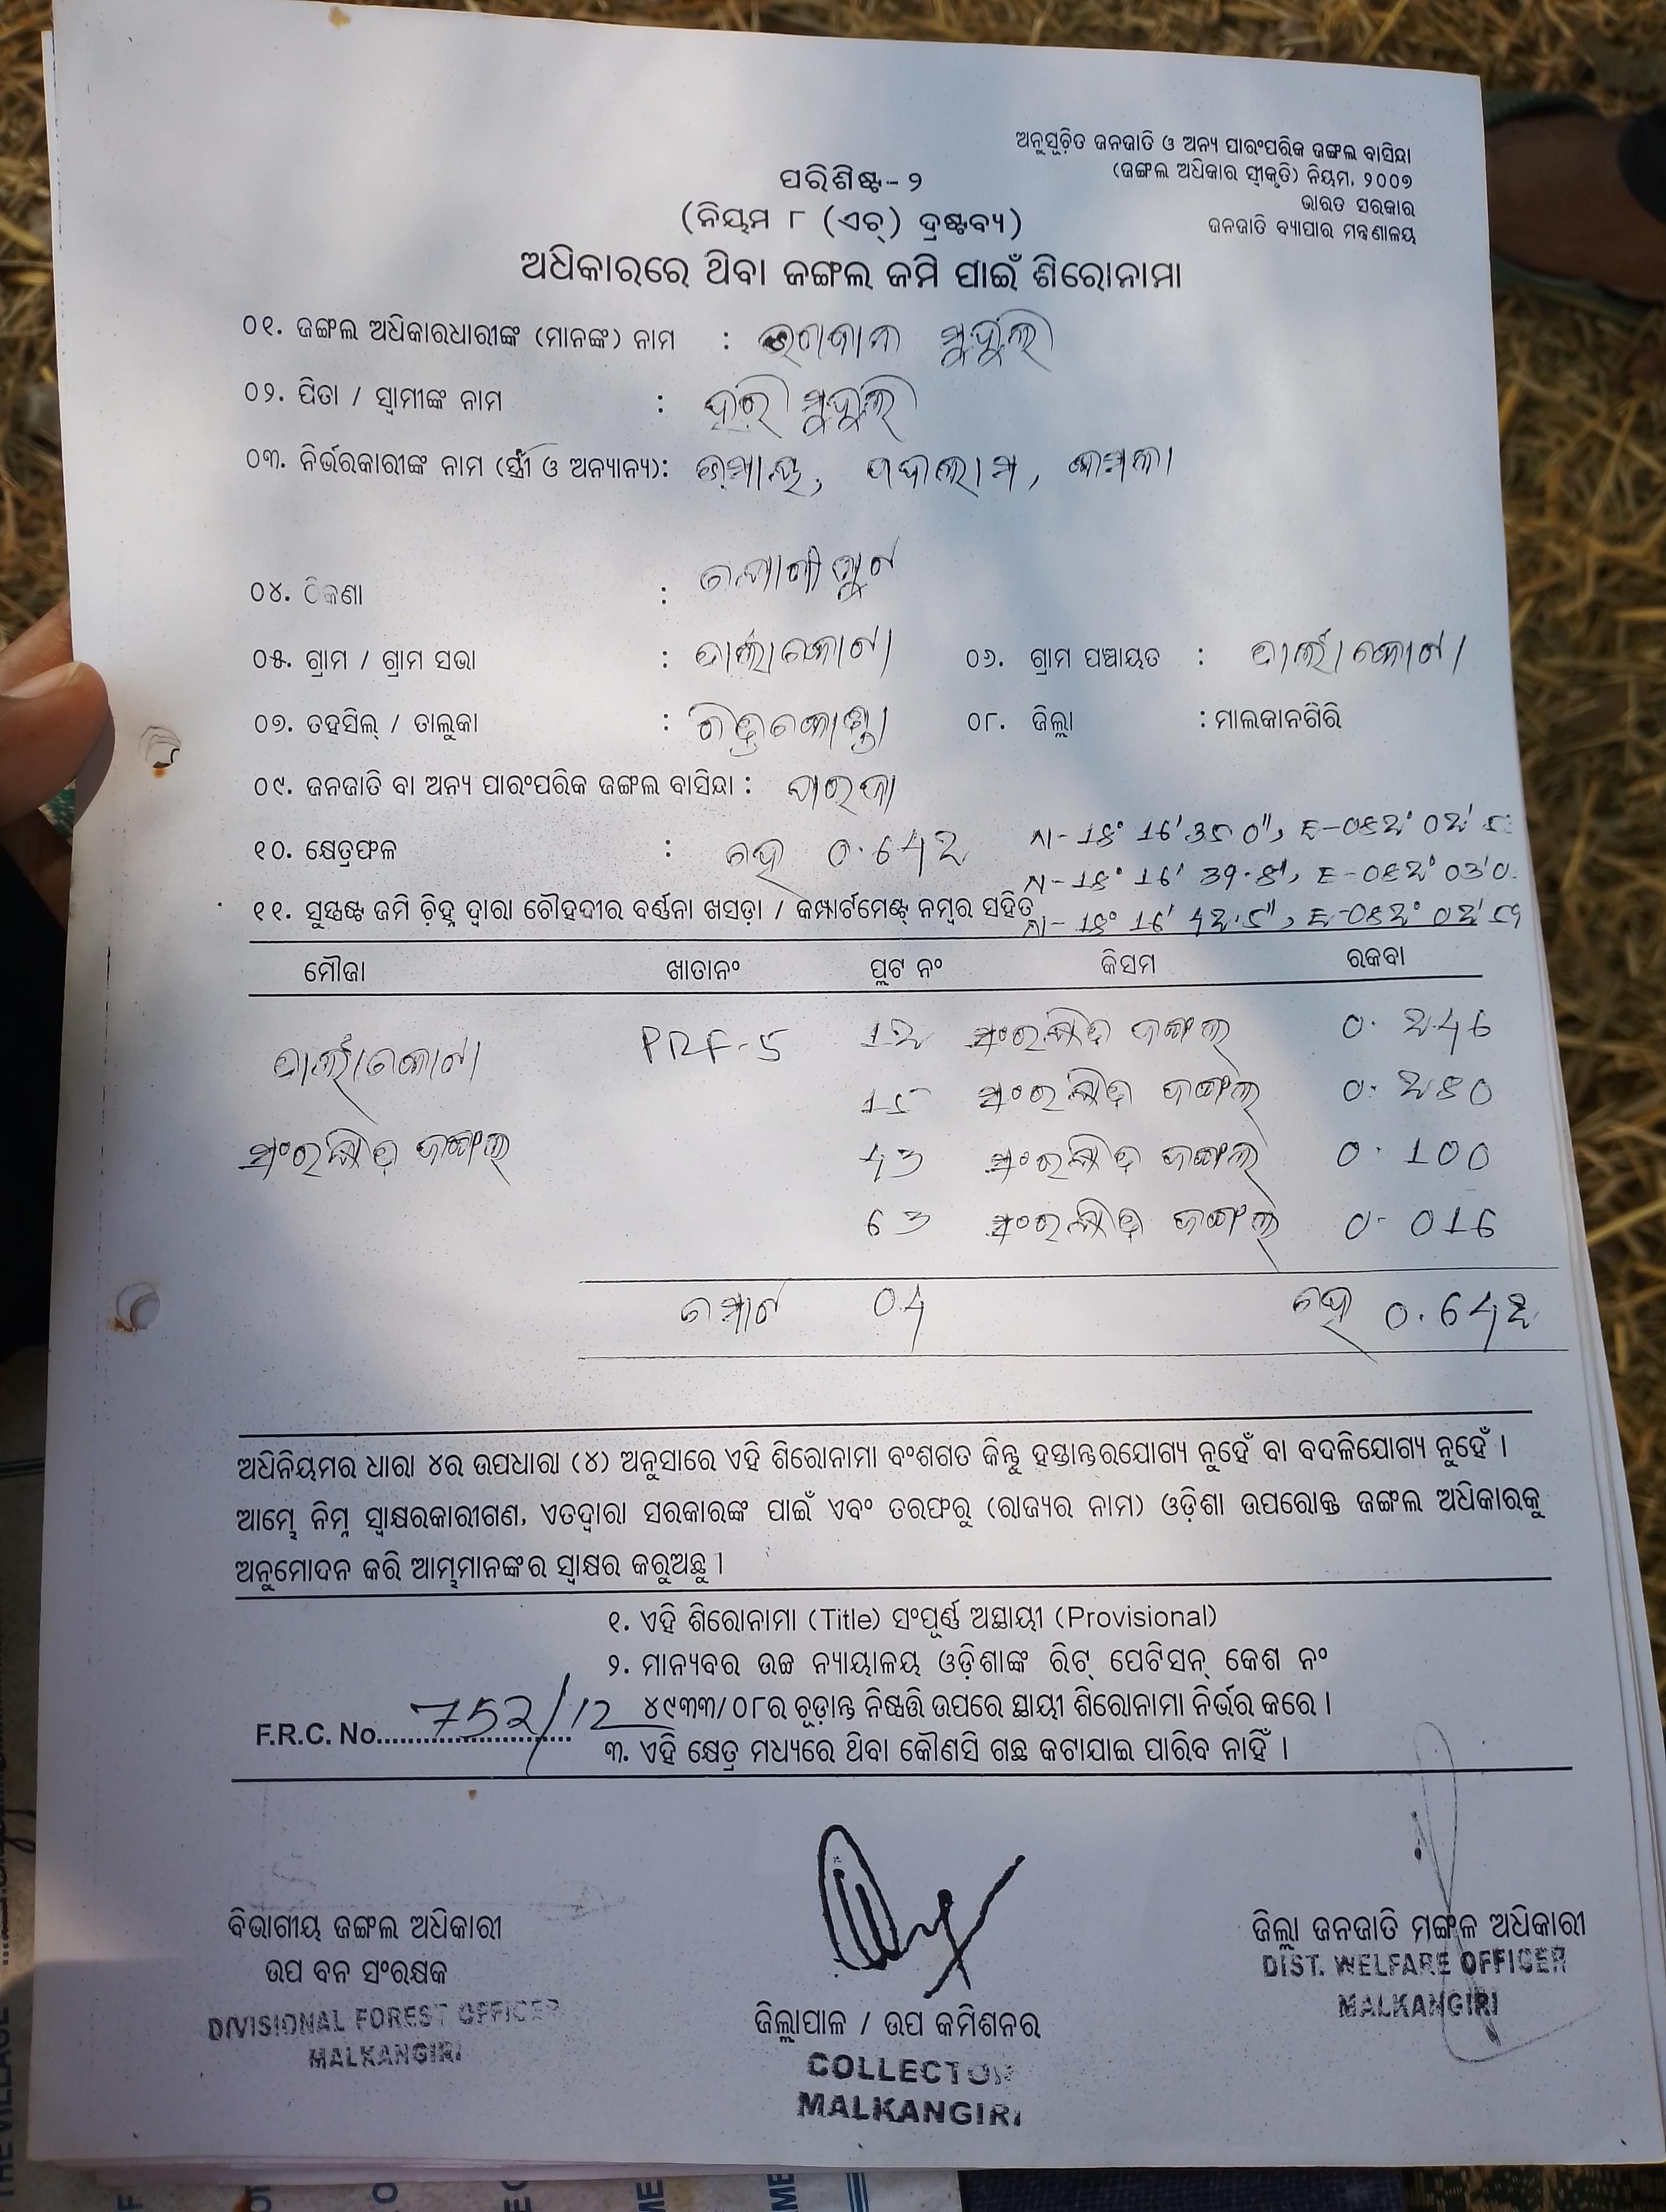 ଅନୁସୂଚିତ ଜନଜାତି ଓ ଅନ୍ୟ ପାରଂପରିକ ଜଙ୍ଗଲ ବାସିନ୍ଦା
(ଜଙ୍ଗଲ ଅଧିକାର ସ୍ୱୀକୃତି) ନିୟମ, ୨୦୦୭
ଭାରତ ସରକାର
ଜନଜାତି ବ୍ୟାପାର ମନ୍ତ୍ରଣାଳୟ
ପରିଶିଷ୍ଟ-୨
(ନିୟମ ୮ (ଏଚ୍) ଦ୍ରଷ୍ଟବ୍ୟ)
ଅଧିକାରରେ ଥିବା ଜଙ୍ଗଲ ଜମି ପାଇଁ ଶିରୋନାମା
୦୧. ଜଙ୍ଗଲ ଅଧିକାରଧାରୀଙ୍କ (ମାନଙ୍କ) ନାମ : ଭଗବାନ ମୁଦୁଲି
୦୨. ପିତା / ସ୍ୱାମୀଙ୍କ ନାମ : ହରି ମୁଦୁଲି
୦୩. ନିର୍ଭରକାରୀଙ୍କ ନାମ (ସ୍ତ୍ରୀ ଓ ଅନ୍ୟାନ୍ୟ):
୦୪. ଠିକଣା :
୦୫. ଗ୍ରାମ / ଗ୍ରାମ ସଭା : ୦୬. ଗ୍ରାମ ପଞ୍ଚାୟତ :
୦୭. ତହସିଲ୍ / ତାଲୁକା : ଚିତ୍ରକୋଣ୍ଡା ୦୮. ଜିଲ୍ଲା : ମାଲକାନଗିରି
୦୯. ଜନଜାତି ବା ଅନ୍ୟ ପାରଂପରିକ ଜଙ୍ଗଲ ବାସିନ୍ଦା : ପରଜା
୧୦. କ୍ଷେତ୍ରଫଳ : ହେ 0.642
୧୧. ସୁସ୍ପଷ୍ଟ ଜମି ଚିହ୍ନ ଦ୍ୱାରା ଚୌହଦୀର ବର୍ଣ୍ଣନା ଖସଡ଼ା / କମ୍ପାର୍ଟମେଣ୍ଟ୍ ନମ୍ବର ସହିତ
ମୌଜା ଖାତାନଂ ପ୍ଲଟ ନଂ କିସମ ରକବା
PRF-5 12 ସଂରକ୍ଷିତ ଜଙ୍ଗଲ 0.246
15 ସଂରକ୍ଷିତ ଜଙ୍ଗଲ 0.280
ସଂରକ୍ଷିତ ଜଙ୍ଗଲ 43 ସଂରକ୍ଷିତ ଜଙ୍ଗଲ 0.100
63 ସଂରକ୍ଷିତ ଜଙ୍ଗଲ 0.016
ମୋଟ 04 ହେ 0.642
ଅଧିନିୟମର ଧାରା ୪ର ଉପଧାରା (୪) ଅନୁସାରେ ଏହି ଶିରୋନାମା ବଂଶଗତ କିନ୍ତୁ ହସ୍ତାନ୍ତରଯୋଗ୍ୟ ନୁହେଁ ବା ବଦଳିଯୋଗ୍ୟ ନୁହେଁ ।
ଆମ୍ଭେ ନିମ୍ନ ସ୍ୱାକ୍ଷରକାରୀଗଣ, ଏତଦ୍ୱାରା ସରକାରଙ୍କ ପାଇଁ ଏବଂ ତରଫରୁ (ରାଜ୍ୟର ନାମ) ଓଡ଼ିଶା ଉପରୋକ୍ତ ଜଙ୍ଗଲ ଅଧିକାରକୁ
ଅନୁମୋଦନ କରି ଆମ୍ଭମାନଙ୍କର ସ୍ୱାକ୍ଷର କରୁଅଛୁ ।
୧. ଏହି ଶିରୋନାମା (Title) ସଂପୂର୍ଣ୍ଣ ଅସ୍ଥାୟୀ (Provisional)
୨. ମାନ୍ୟବର ଉଚ୍ଚ ନ୍ୟାୟାଳୟ ଓଡ଼ିଶାଙ୍କ ରିଟ୍ ପେଟିସନ୍ କେଶ ନଂ
୪୯୩୩/୦୮ର ଚୂଡ଼ାନ୍ତ ନିଷ୍ପତ୍ତି ଉପରେ ସ୍ଥାୟୀ ଶିରୋନାମା ନିର୍ଭର କରେ ।
F.R.C. No.........752/12
୩. ଏହି କ୍ଷେତ୍ର ମଧ୍ୟରେ ଥିବା କୌଣସି ଗଛ କଟାଯାଇ ପାରିବ ନାହିଁ ।
ବିଭାଗୀୟ ଜଙ୍ଗଲ ଅଧିକାରୀ
ଉପ ବନ ସଂରକ୍ଷକ
DIVISIONAL FOREST OFFICER
MALKANGIRI
ଜିଲ୍ଲାପାଳ / ଉପ କମିଶନର
COLLECTOR
MALKANGIRI
ଜିଲ୍ଲା ଜନଜାତି ମଙ୍ଗଳ ଅଧିକାରୀ
DIST. WELFARE OFFICER
MALKANGIRI